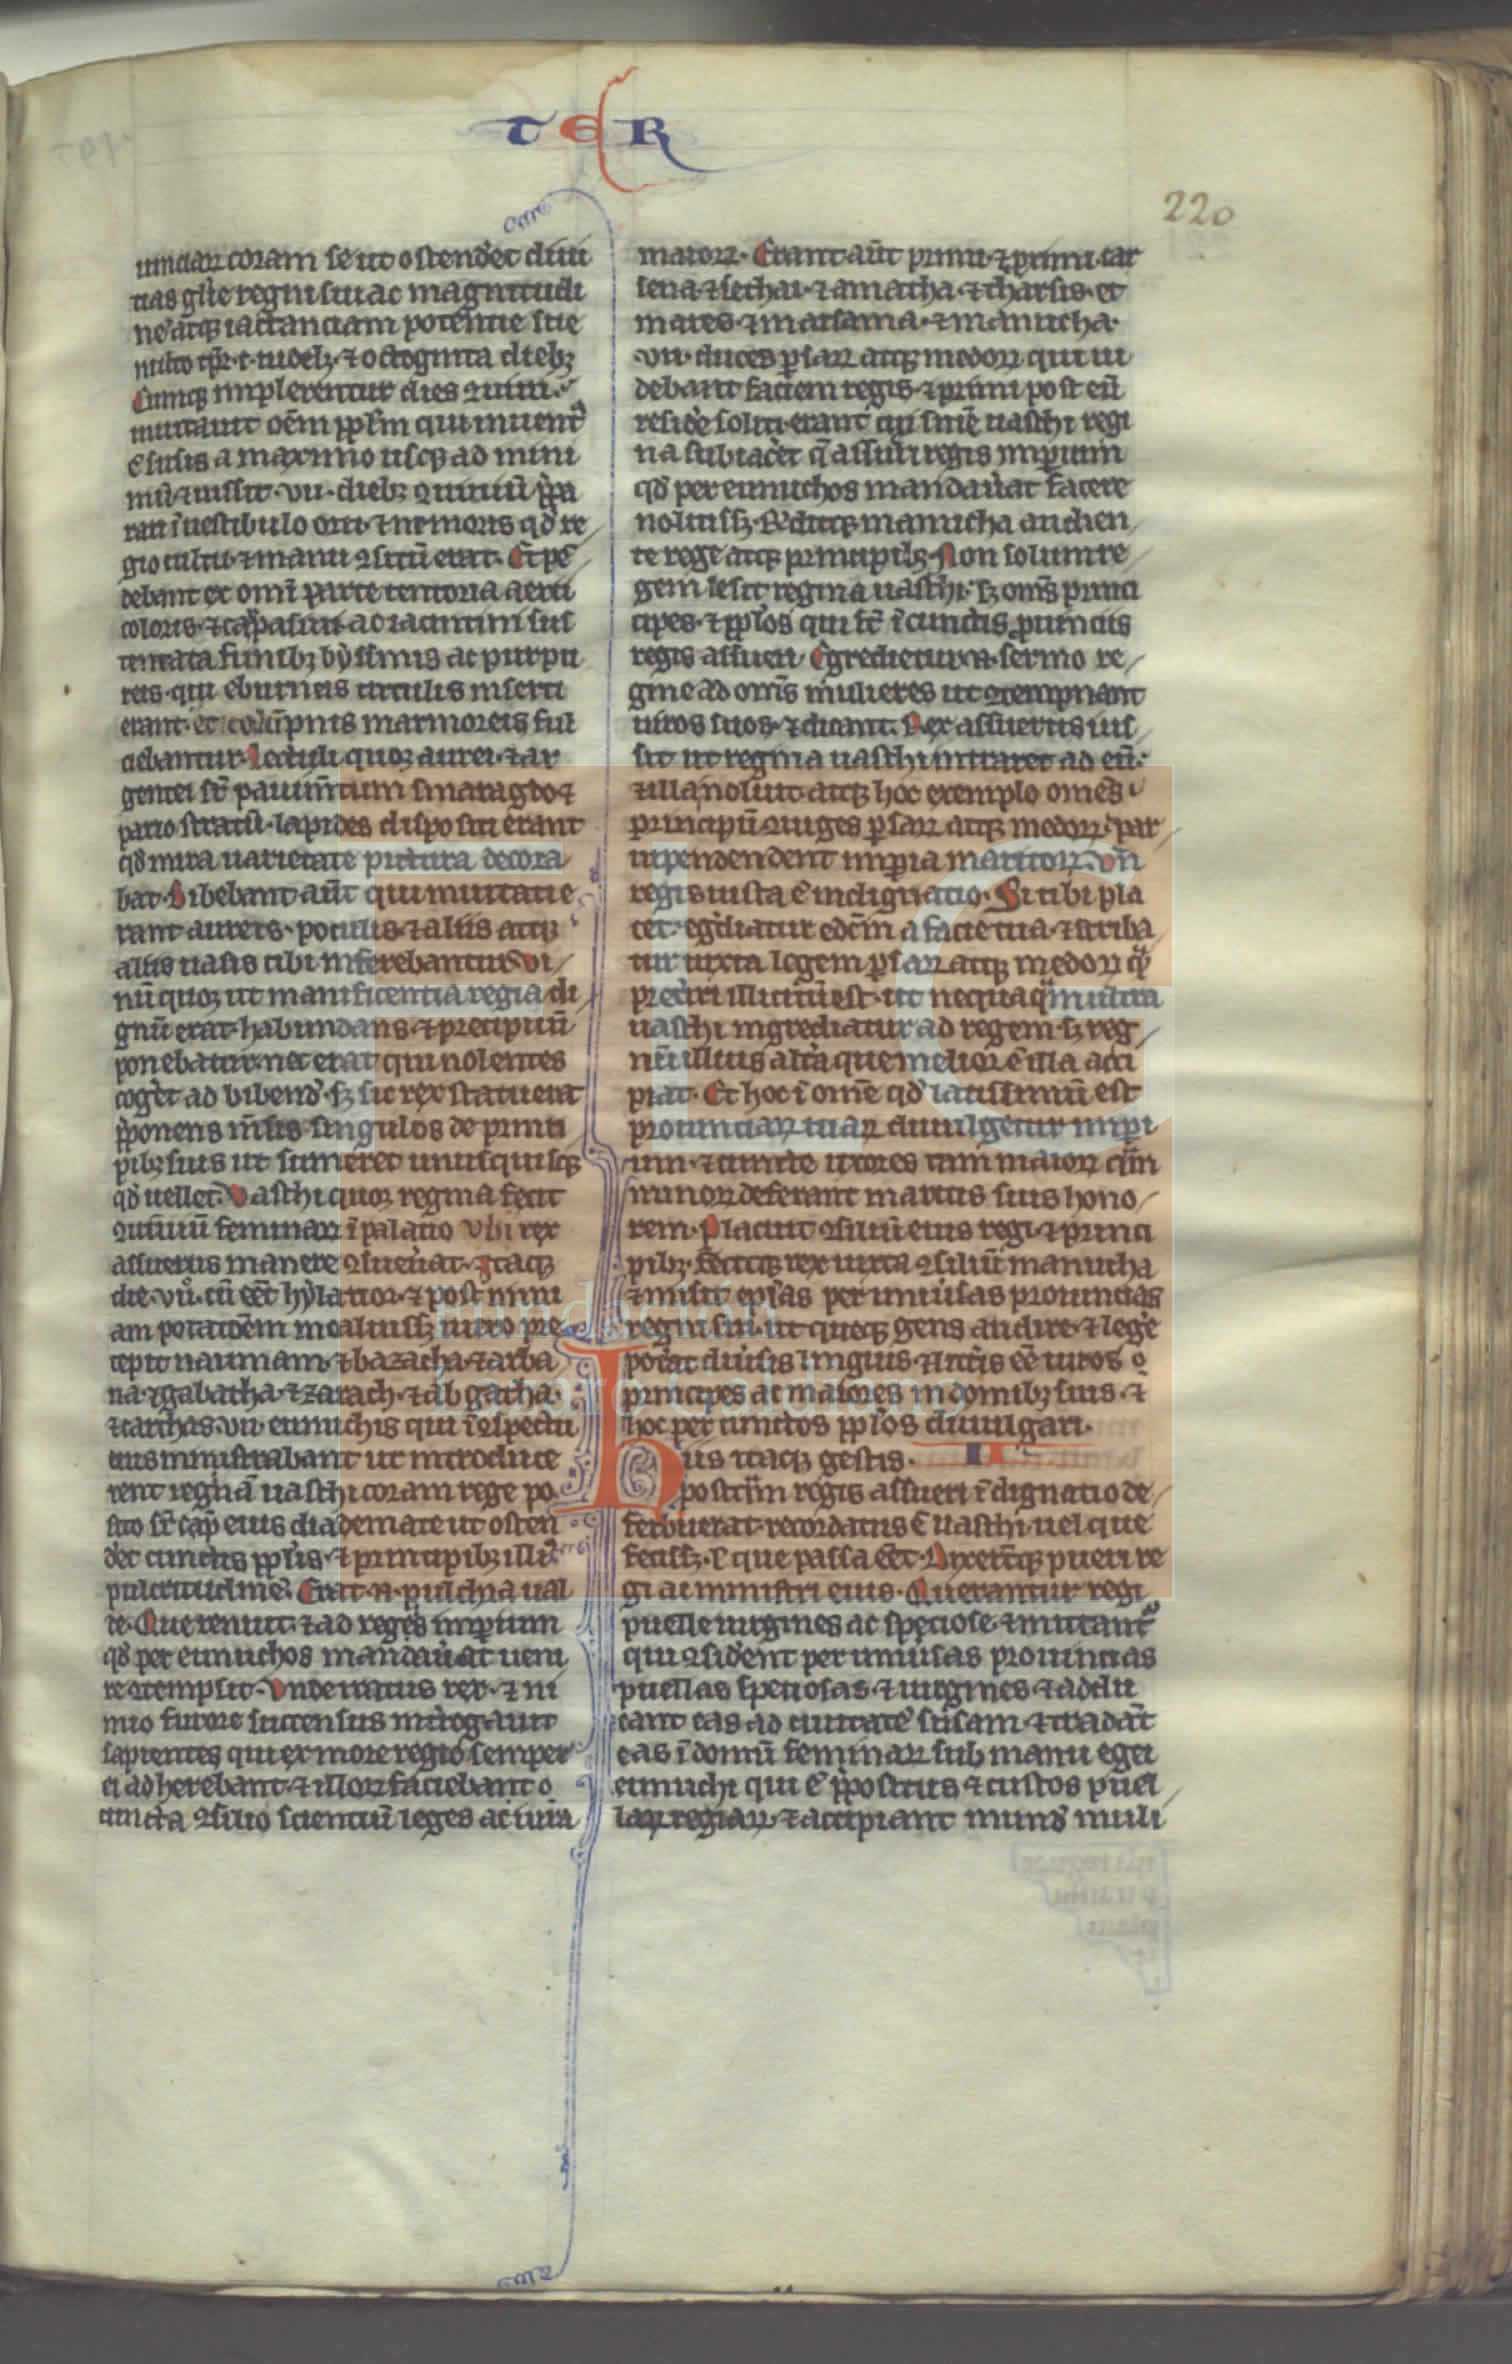 TER
220
uinciarū coram se ut ostend'et diui
tias gl'ie regni sui ac magnitudi
nē atqꝫ iactanciam potentie sue
multo tp̄r .c. uidelꝫ ⁊ octoginta diebꝫ
Cumqꝫ implerentur dies ꝯuiuii
inuitauit oēm pp̄l'm qui inuent᷒
ē susis a maximo usqꝫ ad mini
mū ⁊ iussit .vii. diebꝫ ꝯuiuiū p̄pa
rari ī uestibulo orti ⁊ nemoris qd' re
gio cultu ⁊ manu ꝯsitū erat. Et pē
debant ex omī parte tentoria aerii
coloris ⁊ carpasini ac iacintini sus
tentata funibꝫ bẏssinis ac purpu
reis qui eburneis circulis inserti
erant et colūpnis marmoreis ful
ciebantur. Lectuli quoqꝫ aurei ⁊ ar
gentei sr̄ pauim̄tum smaragdo ⁊
pario stratū lapides dispositi erant
qd' mira uarietate pictura decora
bat. Bibebant aūt qui inuitati e
rant aureis poculis ⁊ aliis atqꝫ
aliis uasis cibi inferebantur. Vi
nū quoqꝫ ut manificentia regia di
gnū erat habundans ⁊ precipuū
ponebatur nec erat qui nolentes
cog'et ad bibend' sꝫ sic rex statuerat
p̄ponens m̄sis singulos de princi
pibꝫ suis ut sumeret unusquisqꝫ
qd' uellet. Vasthi quoqꝫ regina fecit
ꝯuiuiū feminarū ī palatio ubi rex
assuerus manere ꝯsueu'at. Itaqꝫ
die .vii°. cū eēt hẏlarior ⁊ post nimi
am potatōem incaluissꝫ mero pre
cepit naumam ⁊ bazacha ⁊ arba
na ⁊ gabatha ⁊ zarach ⁊ abgatha
⁊ carchas .vii. eunuchis qui ī ꝯspectu
eius ministrabant ut introduce
rent reginā uasthi coram rege po
sito sr̄ cap' eius diademate ut osten
d'et cunctis pp̄l'is ⁊ principibꝫ illi᷒
pulcritudinē. Erat .n. pulchra ual
de. Que renuit ⁊ ad regis imꝑium
qd' per eunuchos mandau'at ueni
re ꝯtempsit. Vnde iratus rex ⁊ ni
mio furore succensus int'rogauit
sapientes qui ex more regio semper
ei adherebant ⁊ illorū faciebant
cuncta ꝯsilio scientiū leges ac iura
maiorū. Erant aūt primi ⁊ ꝓximi car
sena ⁊ sethai ⁊ amatha ⁊ tharsis et
mares ⁊ marsana ⁊ manucha
.vii. duces ꝑsarū atqꝫ medorū qui ui
debant faciem regis ⁊ primi post eū
resid'e soliti erant cui sn̄ie uasthi regi
na subiac'et q̄ assueri regis imꝑium
qd' per eunuchos mandau'at facere
noluissꝫ. R'ditqꝫ manucha audien
te rege atqꝫ principibꝫ. Non solum re
gem lesit regina uasthi sꝫ om̄s princi
cipes ⁊ pp̄l'os qui sr̄ ī cunctis ꝓuinciis
regis assueri. Egredietur .n. sermo re
gine ad om̄s mulieres ut ꝯtempnant
uiros suos ⁊ dicant. Rex assuerus ius
sit ut regina uasthi intraret ad eū
⁊ illa noluit atqꝫ hoc exemplo omēs
principū ꝯiuges ꝑsarū atqꝫ medorū par
uipendendent imꝑia maritorū. Vn̄
regis iusta ē indignatio. Si tibi pla
cet eg'diatur edc̄m a facie tua ⁊ scriba
tur iuxta legem ꝑsarū atqꝫ medorū q̄
pret'iri illicitū est ut nequaq̄m ultra
uasthi ingrediatur ad regem sꝫ reg
nū illius alt'a que melior ē illa acci
piat. Et hoc ī omē qd' latissimū est
prouinciarū tuarū diuulgetur imꝑi
um ⁊ cuncte uxores tam maiorū q̄m
minorū deferant maritis suis hono
rem. Placuit ꝯsiliū eius regi ⁊ princi
pibꝫ. Fecitqꝫ rex iuxta ꝯsiliū manucha
⁊ misit epl'as per uniu'sas prouincias
regni sui ut queqꝫ gens audire ⁊ leg'e
pot'at diu'sis linguis ⁊ litt'is eē uiros
principes ac maiores in domibꝫ suis ⁊
hoc per cunctos pp̄l'os diuulgari.
His itaqꝫ gestis. II
postq̄m regis assueri īdignatio de
ferbuerat recordatus ē uasthi uel que
fecissꝫ ł que passa eēt. Dixer̄tqꝫ pueri re
gi ac ministri eius. Querantur regi
puelle uirgines ac speciose ⁊ mitant᷒
qui ꝯsid'ent per uniu'sas prouincias
puellas speciosas ⁊ uirgines ⁊ addu
cant eas ad ciuitatē susam ⁊ tradāt
eas ī domū feminarū sub manu egei
eunuchi qui ē p̄positus ⁊ custos puel
larū regiarū ⁊ accipiant mund' muli